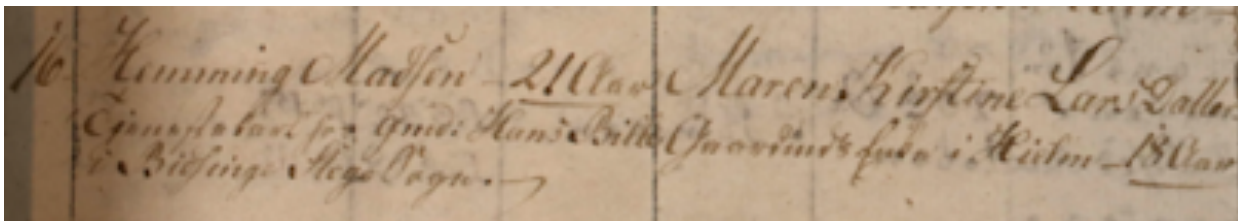 16. Hemming Madsen - 21 Aar Maren Kirstine Lars Datter
Tjenestekarl hos Gmd: Hans Bille Gaardmands i Hielm - 18 Aar
i Bissinge Stege Sogn. -